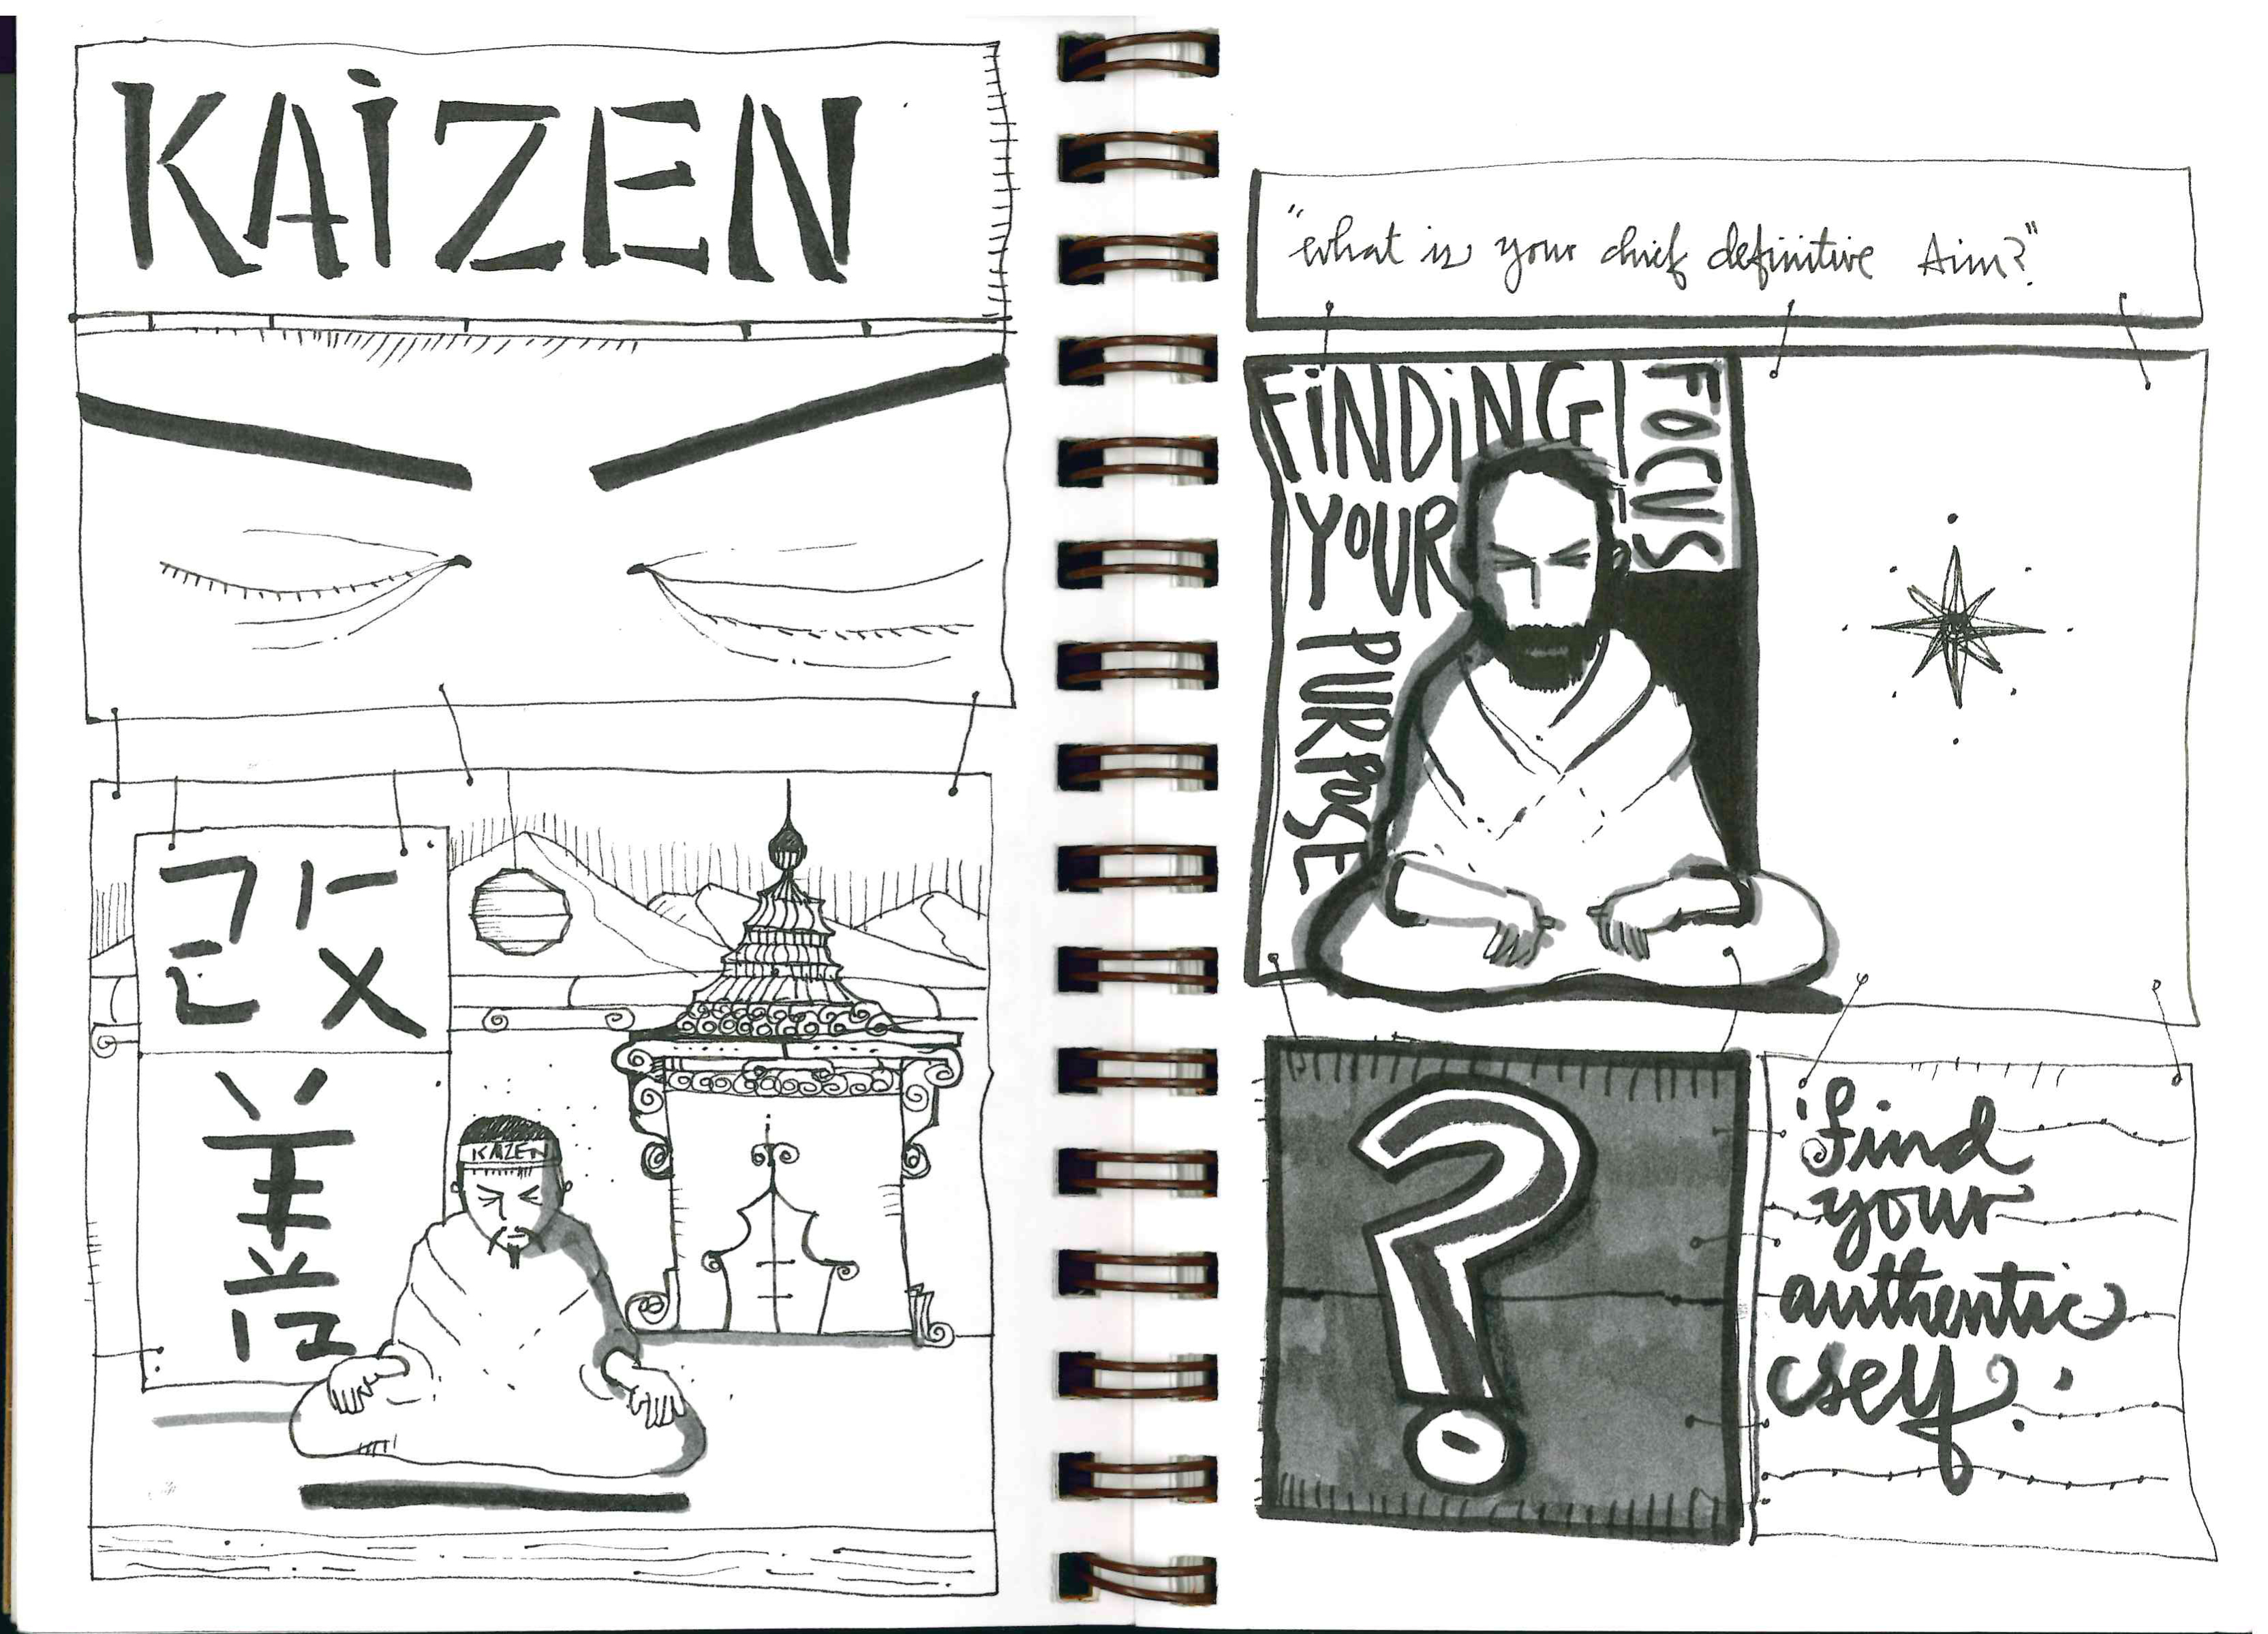 KAiZEN
改
善
KAIZEN
"what is your chief definitive Aim?"
FiNDiNG
YOUR
PURPOSE
FOCUS
?
find
your
authentic
self.